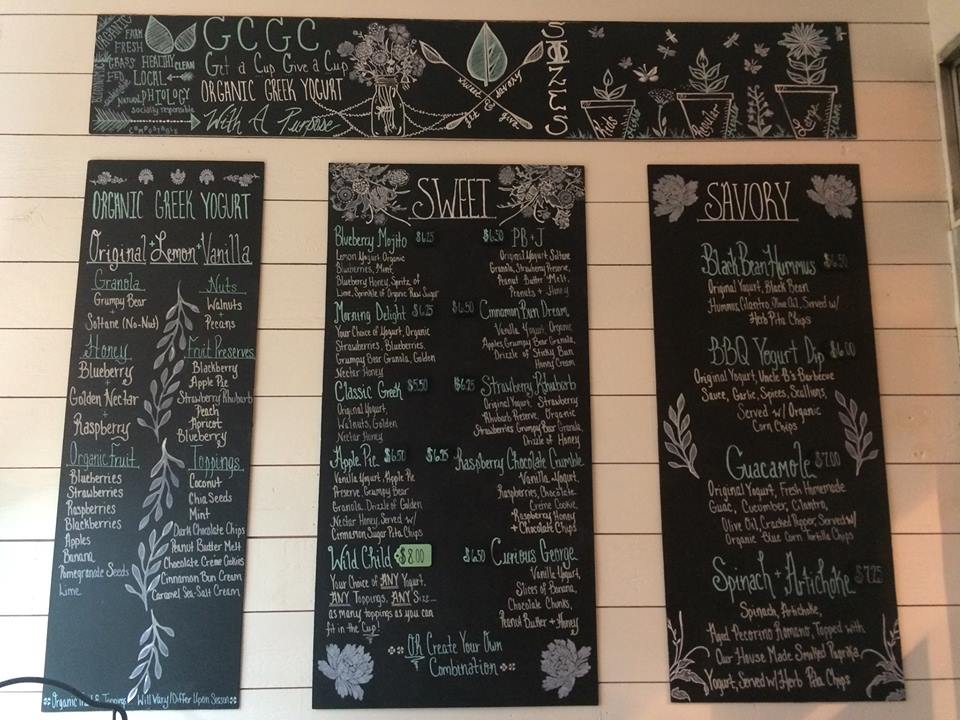 ORGANIC
FARM
FRESH
GRASS HEALTHY
FED CLEAN
LOCAL
NATURAL PHIOLOGY
socially responsible
COMPOSTABLE
GCGC
Get a Cup Give a Cup
ORGANIC GREEK YOGURT
With A Purpose
sweet & savory
get give
SIZES
Kids
Regular
Large
ORGANIC GREEK YOGURT
Original + Lemon + Vanilla
Granola
Grumpy Bear
+
Soltane (No-Nut)
Nuts
Walnuts
+
Pecans
Honey
Blueberry
+
Golden Nectar
+
Raspberry
Fruit Preserves
Blackberry
Apple Pie
Strawberry Rhubarb
Peach
Apricot
Blueberry
Organic Fruit
Blueberries
Strawberries
Raspberries
Blackberries
Apples
Banana
Pomegranate Seeds
Lime
Toppings
Coconut
Chia Seeds
Mint
Dark Chocolate Chips
Peanut Butter Melt
Chocolate Créme Cookies
Cinnamon Bun Cream
Caramel Sea-Salt Cream
Organic Fruit & Toppings Will Vary/Differ Upon Season
SWEET
Blueberry Mojito $6.25
Lemon Yogurt Organic
Blueberries, Mint,
Blueberry Honey, Spritz of
Lime, Sprinkle of Organic Raw Sugar
$6.50 PB+J
Original Yogurt, Soltane
Granola, Strawberry Preserve,
Peanut Butter Melt,
Peanuts + Honey
Morning Delight $6.25
Your Choice of Yogurt, Organic
Strawberries, Blueberries,
Grumpy Bear Granola, Golden
Nectar Honey
$6.50 Cinnamon Bun Dream
Vanilla Yogurt, Organic
Apples, Grumpy Bear Granola,
Drizzle of Sticky Bun
Honey Cream
Classic Greek $5.50
Original Yogurt,
Walnuts, Golden
Nectar Honey
$6.25 Strawberry Rhubarb
Original Yogurt, Strawberry
Rhubarb Preserve, Organic
Strawberries, Grumpy Bear Granola,
Drizzle of Honey
Apple Pie $6.50
Vanilla Yogurt, Apple Pie
Preserve, Grumpy Bear
Granola, Drizzle of Golden
Nectar Honey Served w/
Cinnamon Sugar Pita Chips
$6.25 Raspberry Chocolate Crumble
Vanilla Yogurt,
Raspberries, Chocolate
Créme Cookie,
Raspberry Honey
+ Chocolate Chips
Wild Child $8.00
Your Choice of ANY Yogurt,
ANY Toppings, ANY Size...
as many toppings as you can
fit in the Cup!
$6.50 Curious George
Vanilla Yogurt,
Slices of Banana,
Chocolate Chunks,
Peanut Butter + Honey
OR Create Your Own
Combination
SAVORY
Black Bean Hummus $6.50
Original Yogurt, Black Bean
Hummus, Cilantro, Olive Oil, Served w/
Herb Pita Chips
BBQ Yogurt Dip $6.00
Original Yogurt, Uncle B's Barbecue
Sauce, Garlic, Spices, Scallions,
Served w/ Organic
Corn Chips
Guacamole $7.00
Original Yogurt, Fresh Homemade
Guac, Cucumber, Cilantro,
Olive Oil, Cracked Pepper, Served w/
Organic Blue Corn Tortilla Chips
Spinach + Artichoke $7.25
Spinach, Artichoke,
Aged Pecorino Romano, Topped with
Our House Made Smoked Paprika
Yogurt, Served w/ Herb Pita Chips